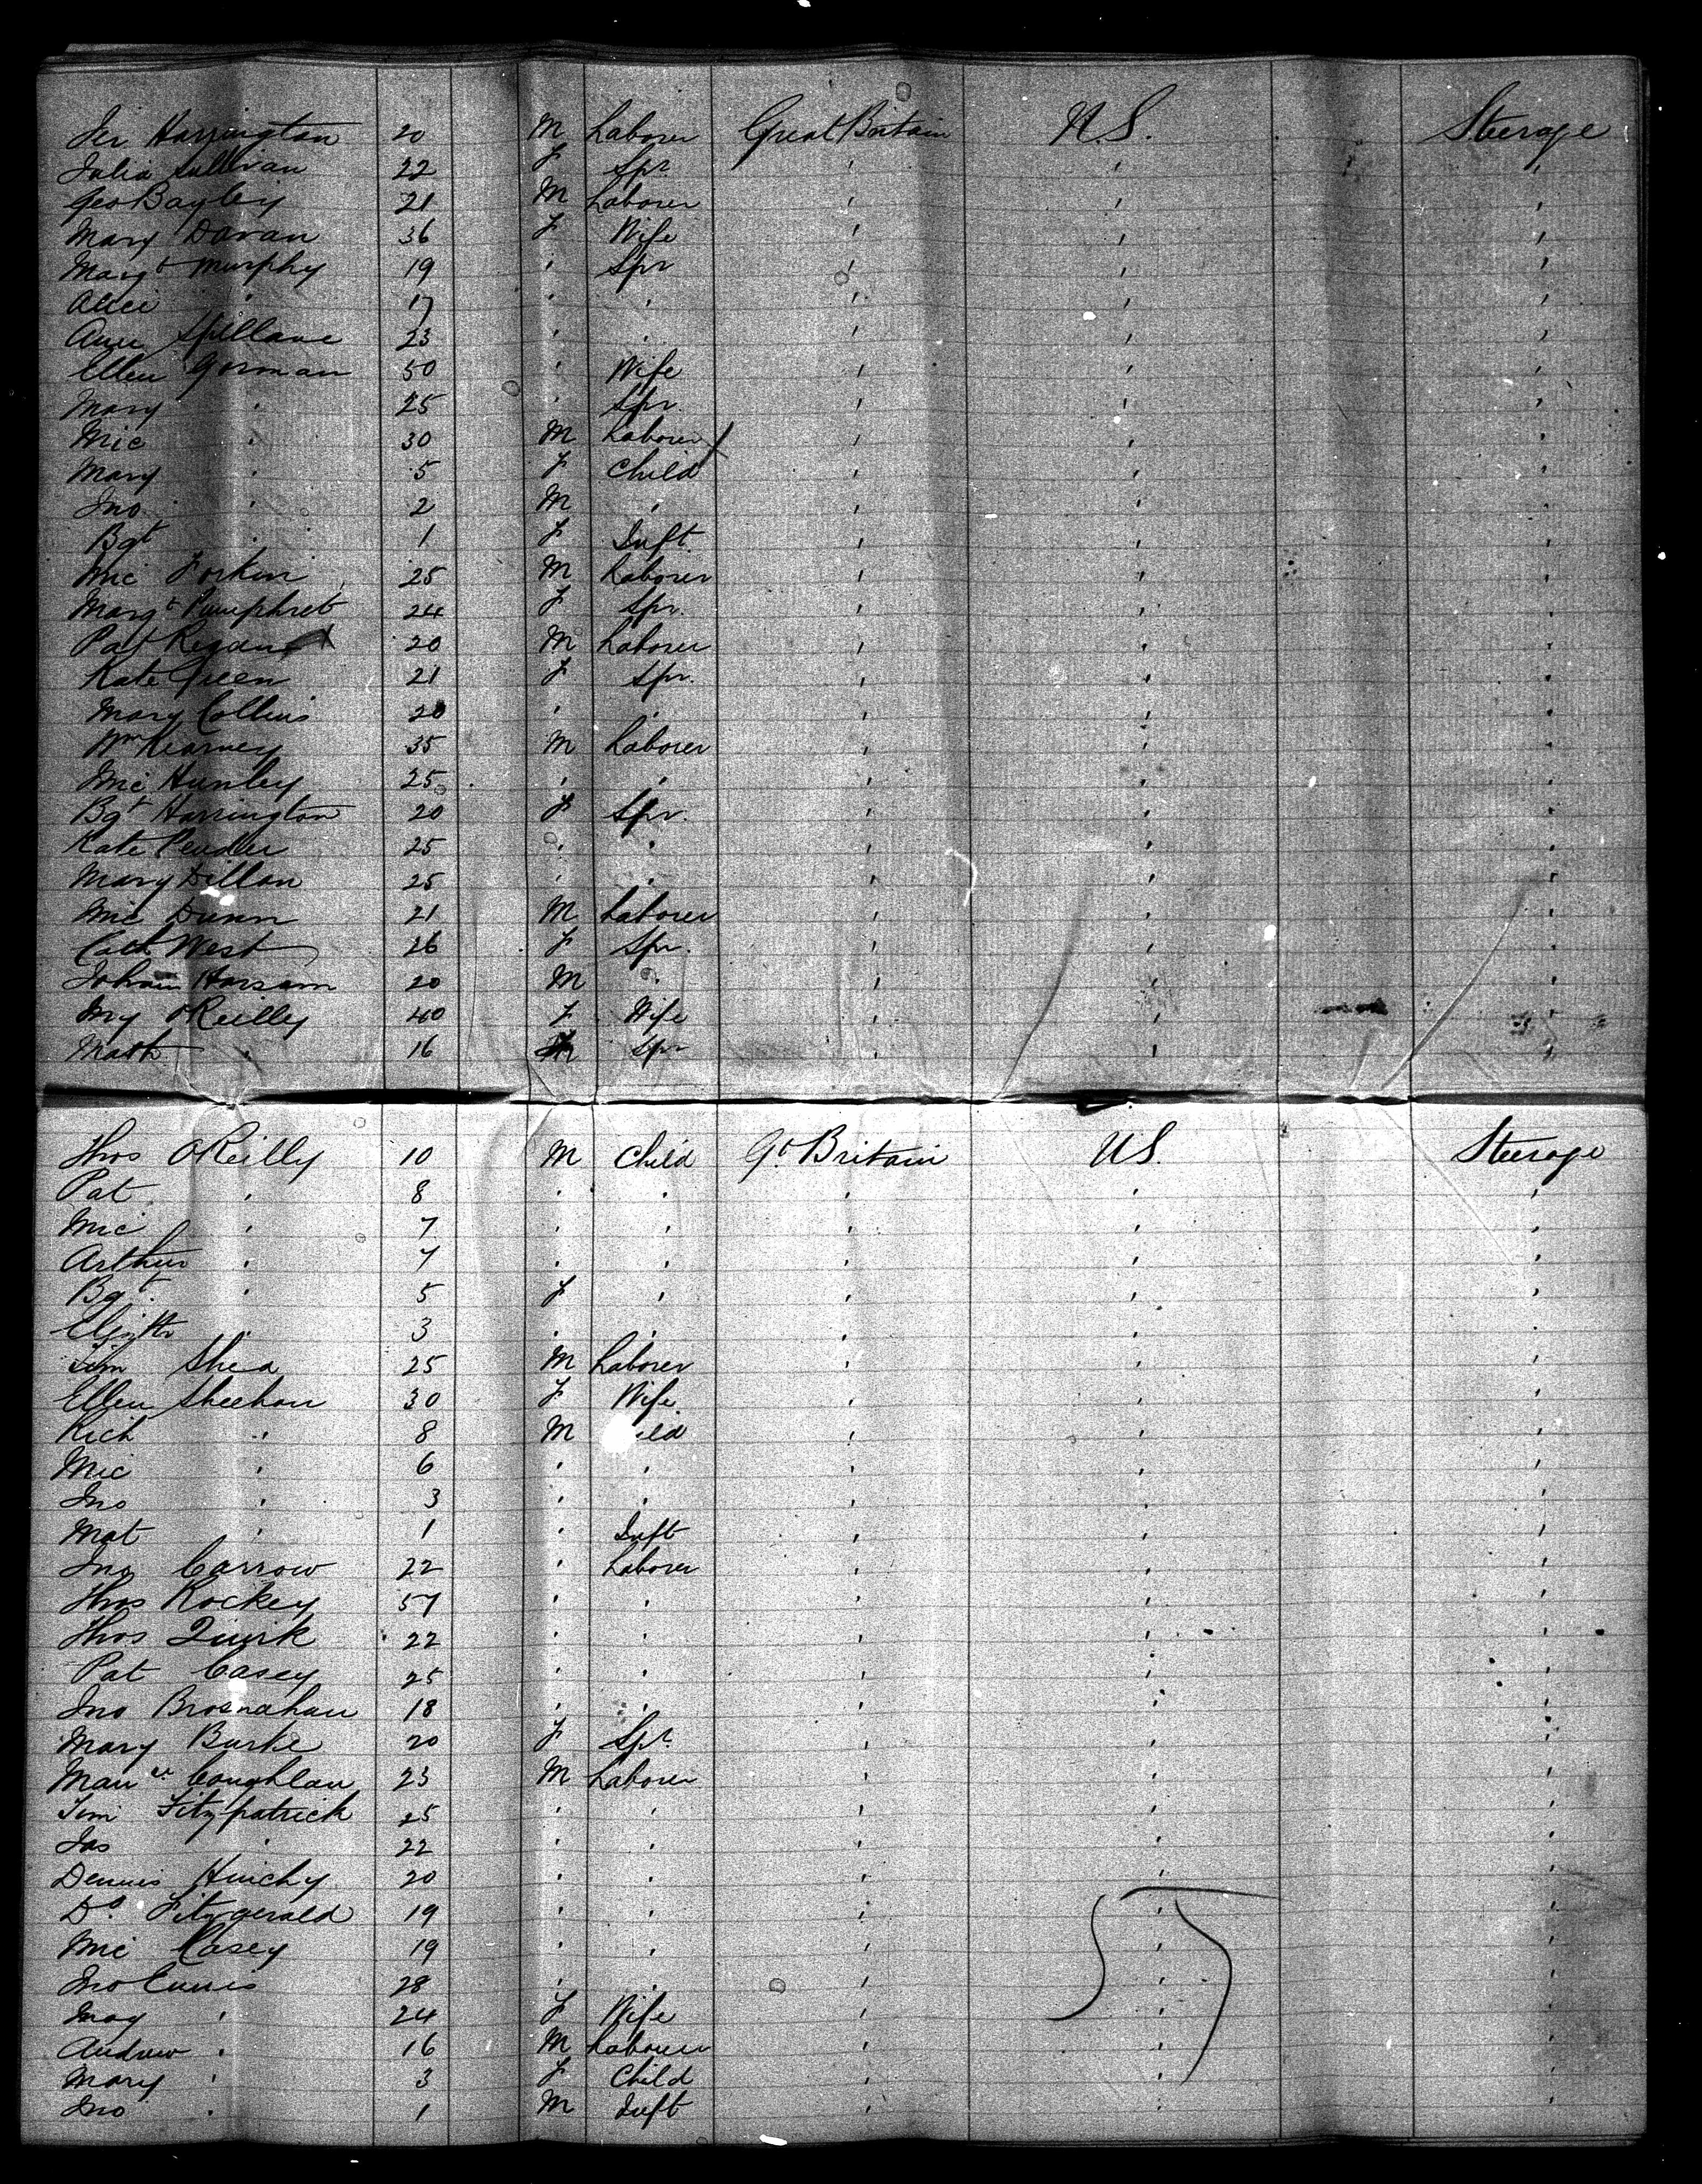 Jer Harrington 20 M Laborer Great Britain U.S. Steerage
Julia Sullivan 22 F Spr " " "
Geo Bayley 21 M Laborer " " "
Mary Davan 36 F Wife " " "
Margt Murphy 19 " Spr " " "
Alice " 17 " " " " "
Ann Spillane 23 " " " " "
Ellen Gorman 50 " Wife " " "
Mary " 25 " Spr. " " "
Mic " 30 M Laborer " " "
Mary " 5 F Child " " "
Jno " 2 M " " " "
Bgt " 1 F Inft. " " "
Mic Forkin 25 M Laborer " " "
Margt Pumphret 24 F Spr. " " "
Pat Regan 20 M Laborer " " "
Kate Green 21 F Spr. " " "
Mary Collins 20 " " " " "
Wm Kearney 35 M Laborer " " "
Mic Hunley 25 " " " " "
Bgt Harrington 20 F Spr. " " "
Kate Pender 25 " " " " "
Mary Dillan 25 " " " " "
Mic Dunn 21 M Laborer " " "
Cath West 26 F Spr. " " "
20 M " " " "
My O'Reilly 40 F Wife " " "
Math " 16 M Spr " " "
Thos O'Reilly 10 M Child Gt Britain U.S. Steerage
Pat " 8 " " " " "
Mic " 7 " " " " "
Arthur " 7 " " " " "
Bgt " 5 F " " " "
Elizth " 3 " " " " "
Tim Shea 25 M Laborer " " "
Ellen Sheehan 30 F Wife " " "
Rich " 8 M ild " " "
Mic " 6 " " " " "
Jno " 3 " " " " "
Mat " 1 " Inft " " "
Jno Carrow 22 " Laborer " " "
Thos Rockey 57 " " " " "
Thos Quirk 22 " " " " "
Pat Casey 25 " " " " "
Jno Brosnahan 18 " " " " "
Mary Burke 20 F Spr " " "
Maurce Coughlan 23 M Laborer " " "
Tim Fitzpatrick 25 " " " " "
Jas " 22 " " " " "
Dennis Hinchy 20 " " " " "
Do Fitzgerald 19 " " " " "
Mic Casey 19 " " " " "
Jno Ennis 28 " " " " "
My " 24 F Wife " " "
Andrew " 16 M Laborer " " "
Mary " 3 F Child " " "
Jno " 1 M Inft " " "